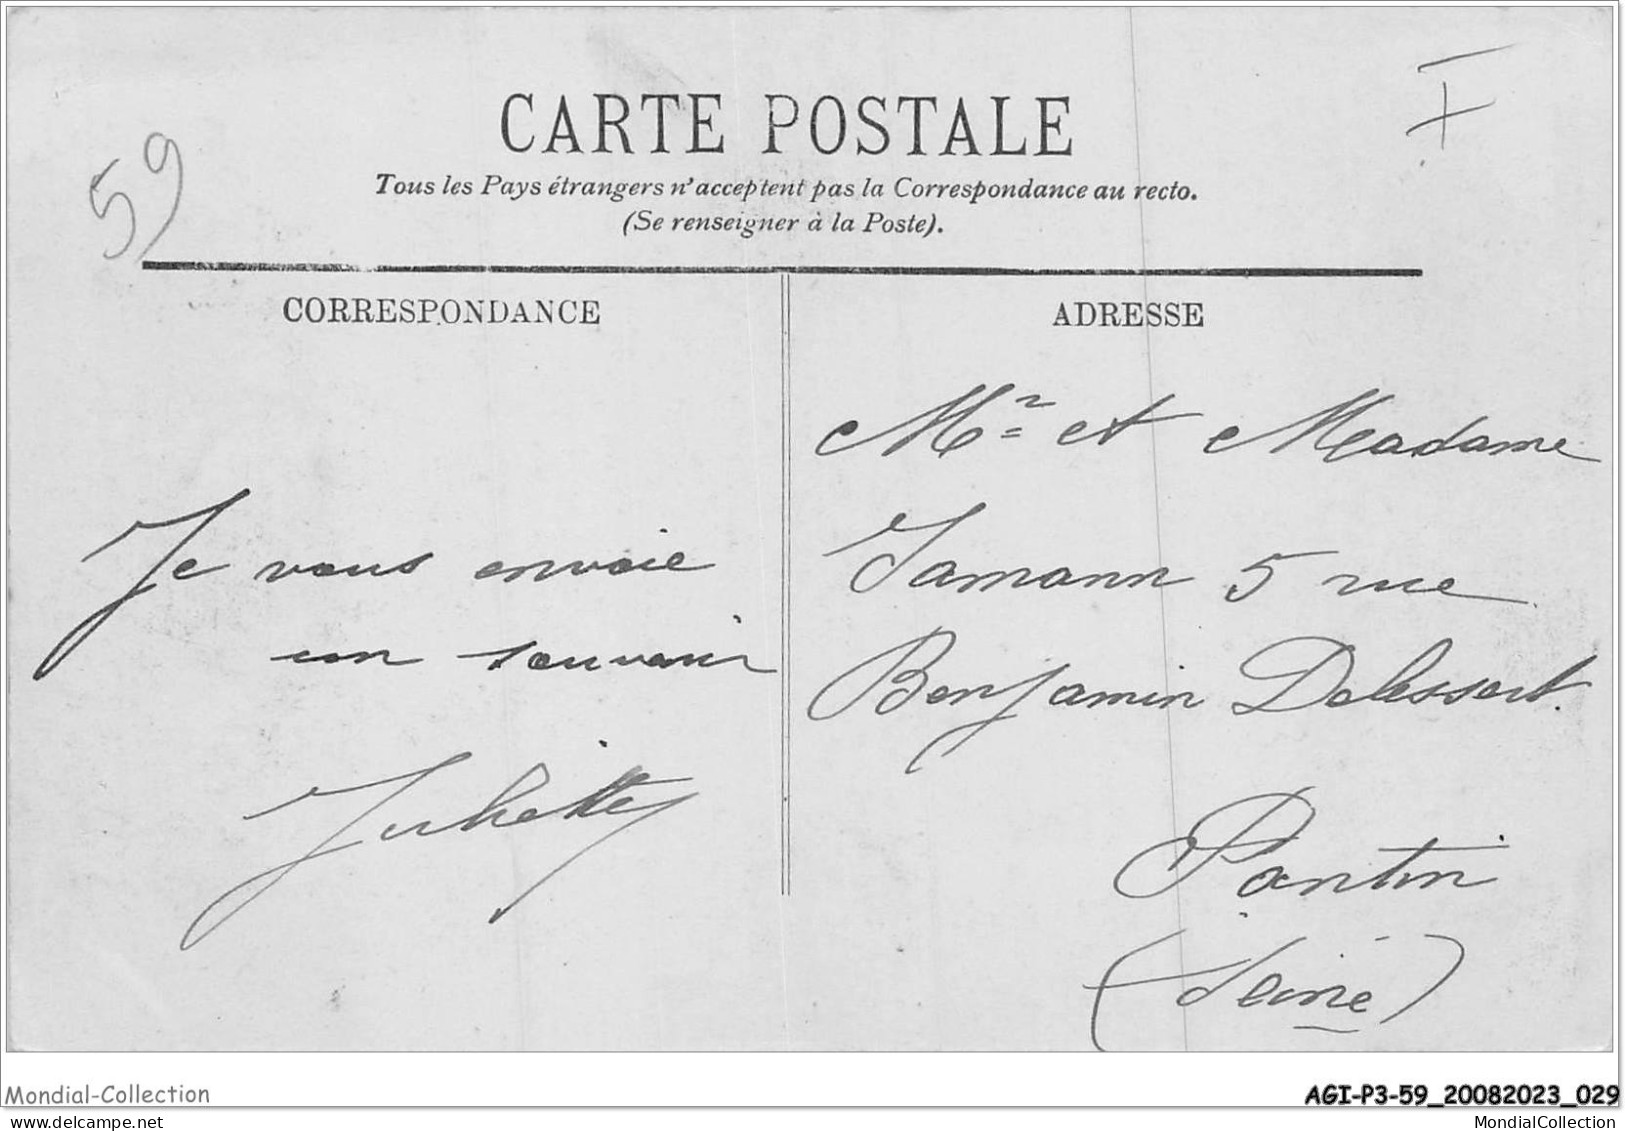 59
F
CARTE POSTALE
Tous les Pays étrangers n'acceptent pas la Correspondance au recto.
(Se renseigner à la Poste).
CORRESPONDANCE
Je vous envoie
un souvenir
Juliette
ADRESSE
Mr et Madame
Jamann 5 rue
Benjamin Delessert.
Pantin
(Seine)
Mondial-Collection
AGI-P3-59_20082023_029
www.delcampe.net
MondialCollection